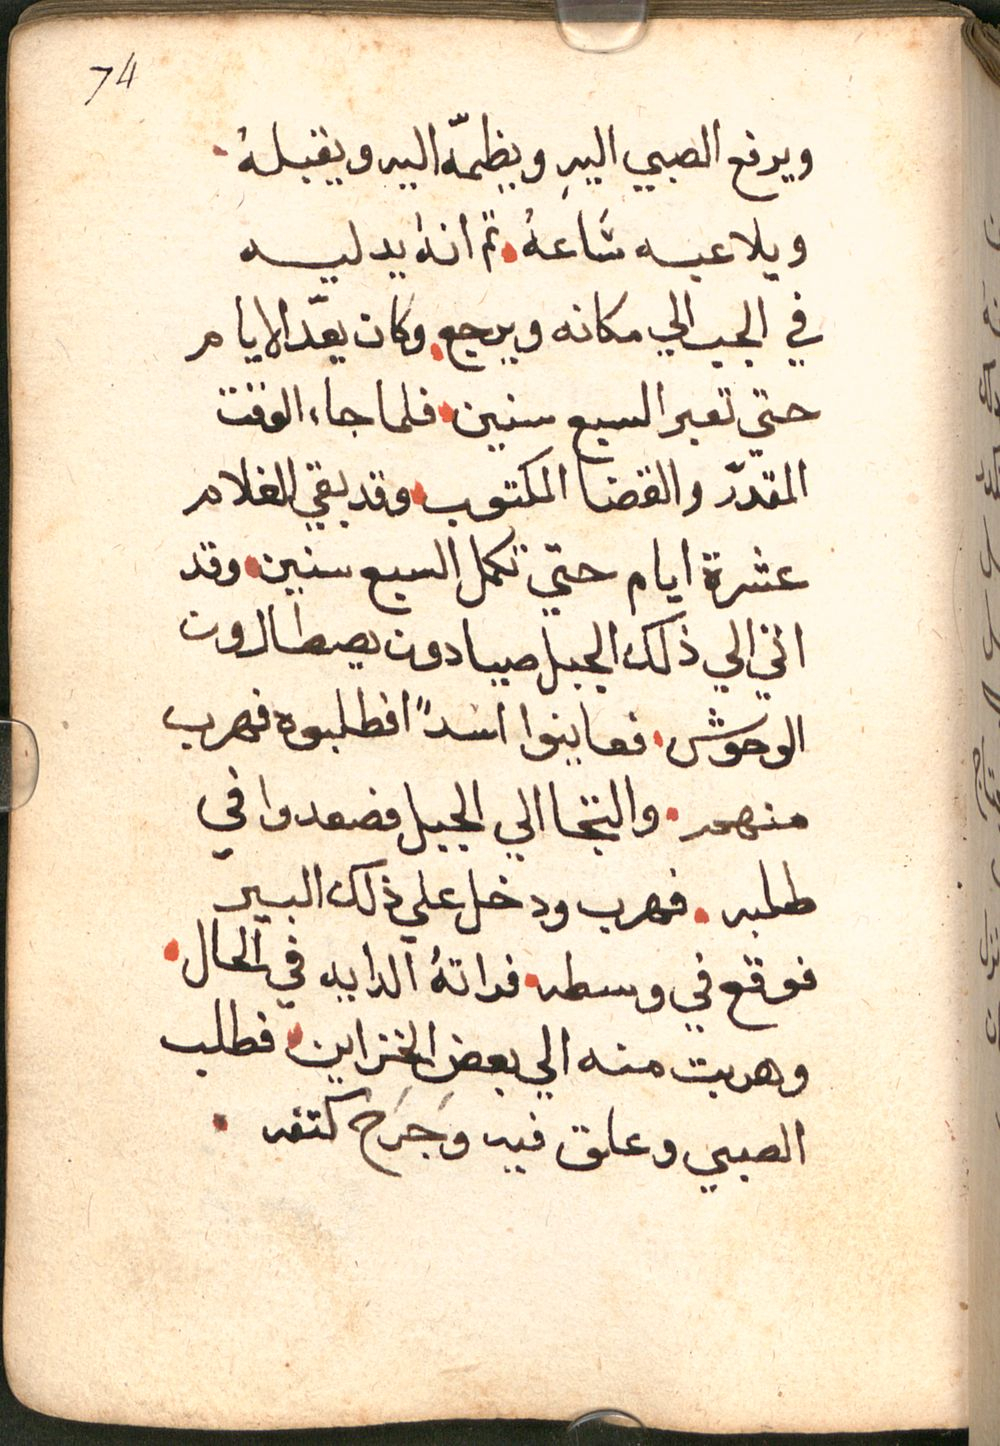 74
ويرفع الصبي اليهِ ويظمّه اليه ويقبلهُ
ويلاعبه شاعهُ ثم انهُ يدليه
في الجب الي مكانه ويرجع وكان يعدّ الايام
حتي تعبر السبع سنين فلما جاء الوقت
المقدرّ والقضا المكتوب وقد بقي للغلام
عشرة ايام حتي تكمل السبع سنين وقد
اتي الي ذلك الجبل صيادون يصطادون
الوحوش فعاينوا اسداً افطلبوه فهرب
منهم والتجا الي الجبل فصعدوا في
طلبه فهرب ودخل علي ذلك البير
فوقع في وسطه فراتهُ الدايه في الحال
وهربت منه الي بعض الخزاين فطلب
الصبي وعلق فيه وَجَرَح كتفه